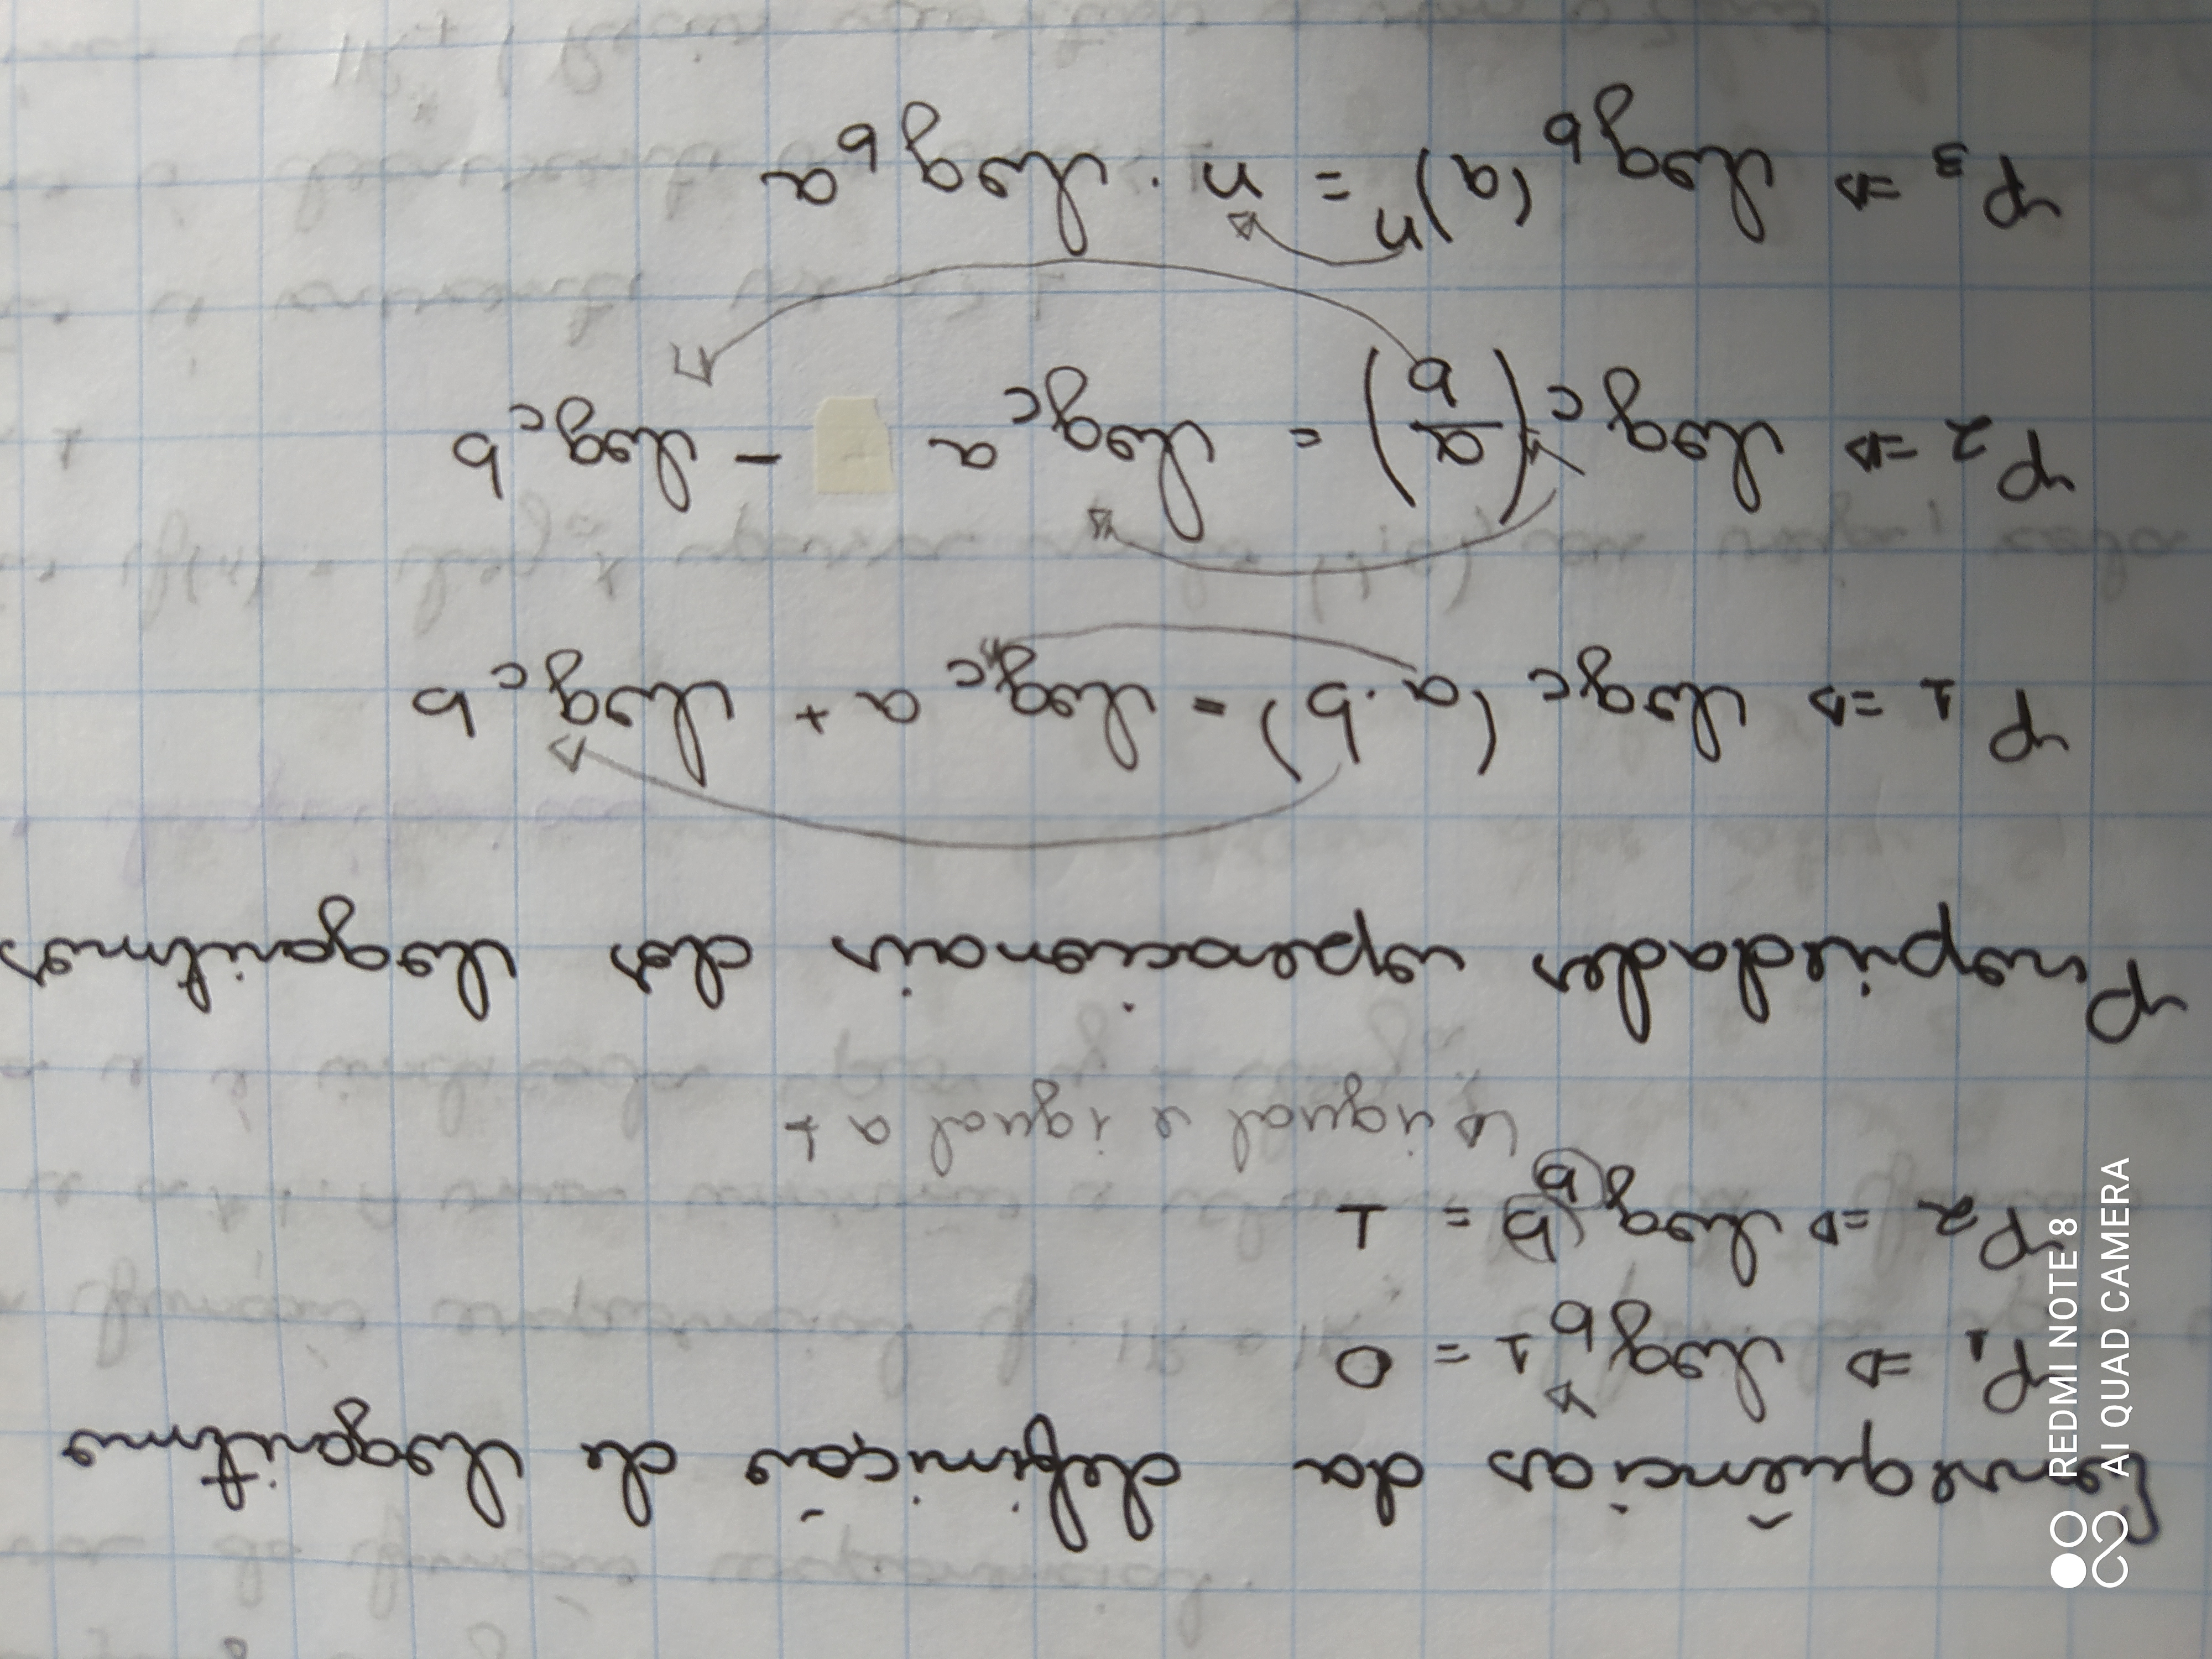 Consequências da definição de logaritmo
P₁ ⇒ log_b 1 = 0
P₂ ⇒ log_b (b) = 1
↳ igual e igual a 1
Propriedades operacionais dos logaritmos
P₁ ⇒ log_c (a.b) = log_c a + log_c b
P₂ ⇒ log_c (a/b) = log_c a - log_c b
P₃ ⇒ log_b (a)ⁿ = n . log_b a
REDMI NOTE 8
AI QUAD CAMERA